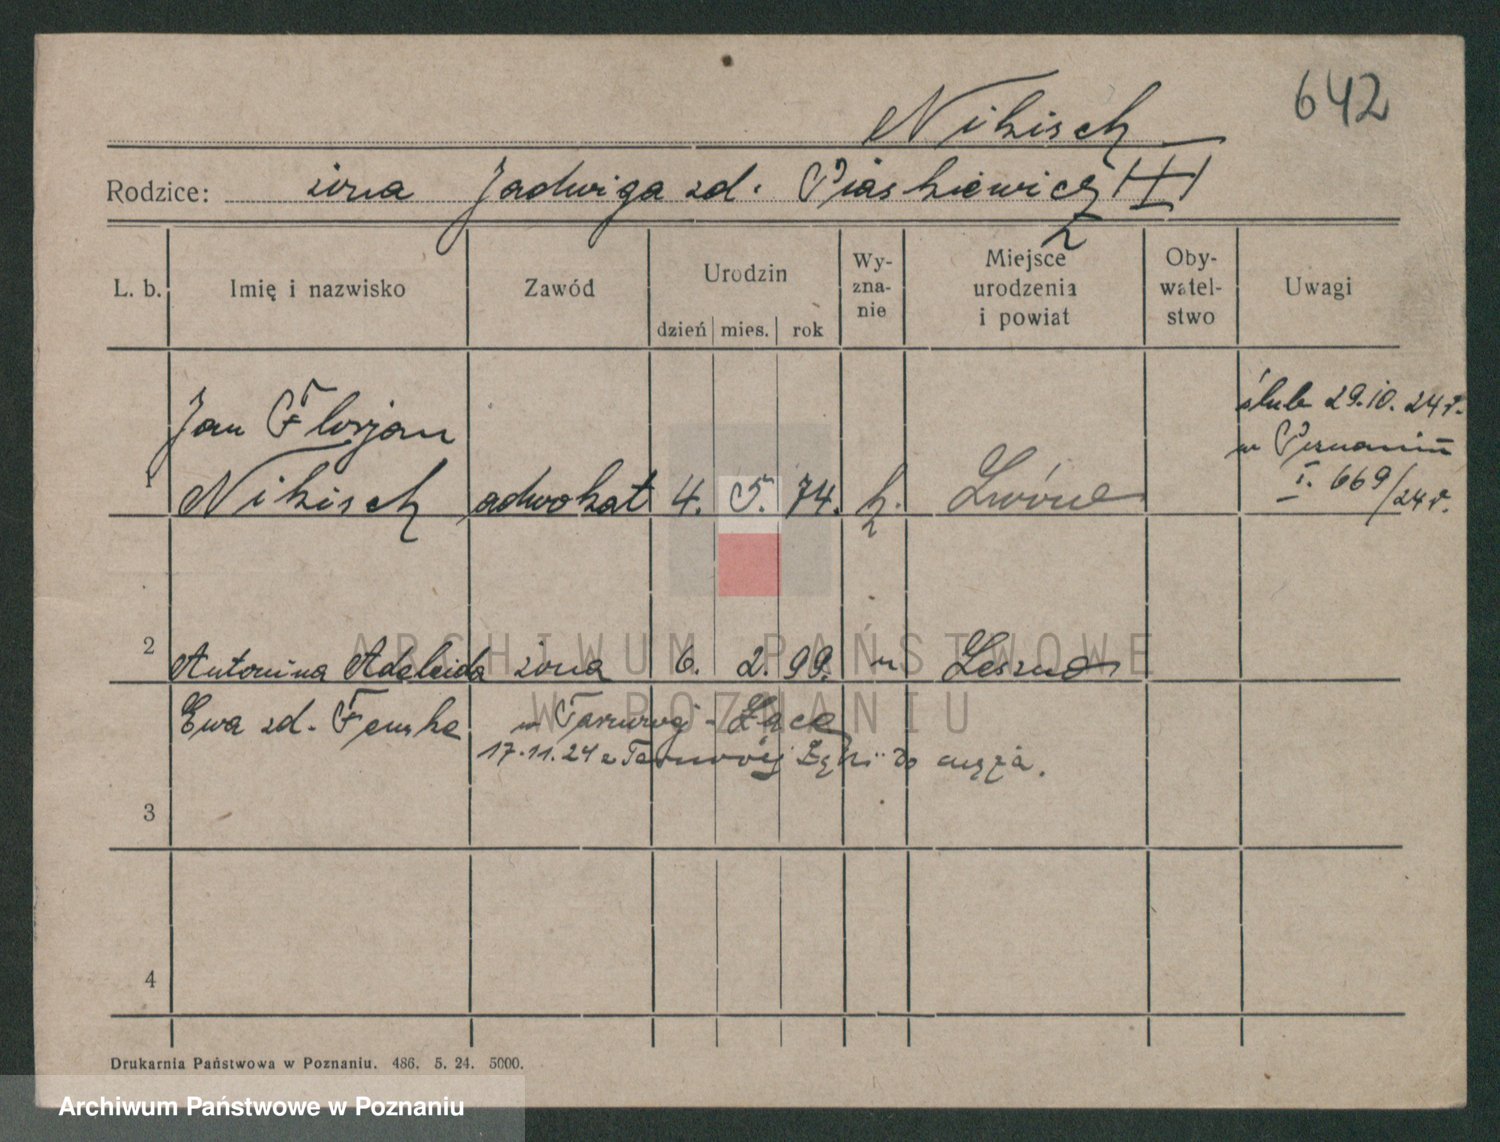 642
Nikisch
Rodzice: żona Jadwiga zd. Piaskiewicz III
L. b. Imię i nazwisko Zawód Urodzin dzień mies. rok Wy-zna-nie Miejsce urodzenia i powiat Oby-watel-stwo Uwagi
ślub 29.10.24 r.
Jan Florjan
w Poznaniu
I. 669/24 r.
1 Nikisch adwokat 4. 5. 74. k. Lwów
2 Antonina Adelaida żona 6. 2. 99. " Leszno
Ewa zd. Fenske w Tarnowej-Łące
17.11.24 z Tarnowej Łąki do męża.
3
4
ARCHIWUM PAŃSTWOWE
W POZNANIU
Drukarnia Państwowa w Poznaniu. 486. 5. 24. 5000.
Archiwum Państwowe w Poznaniu